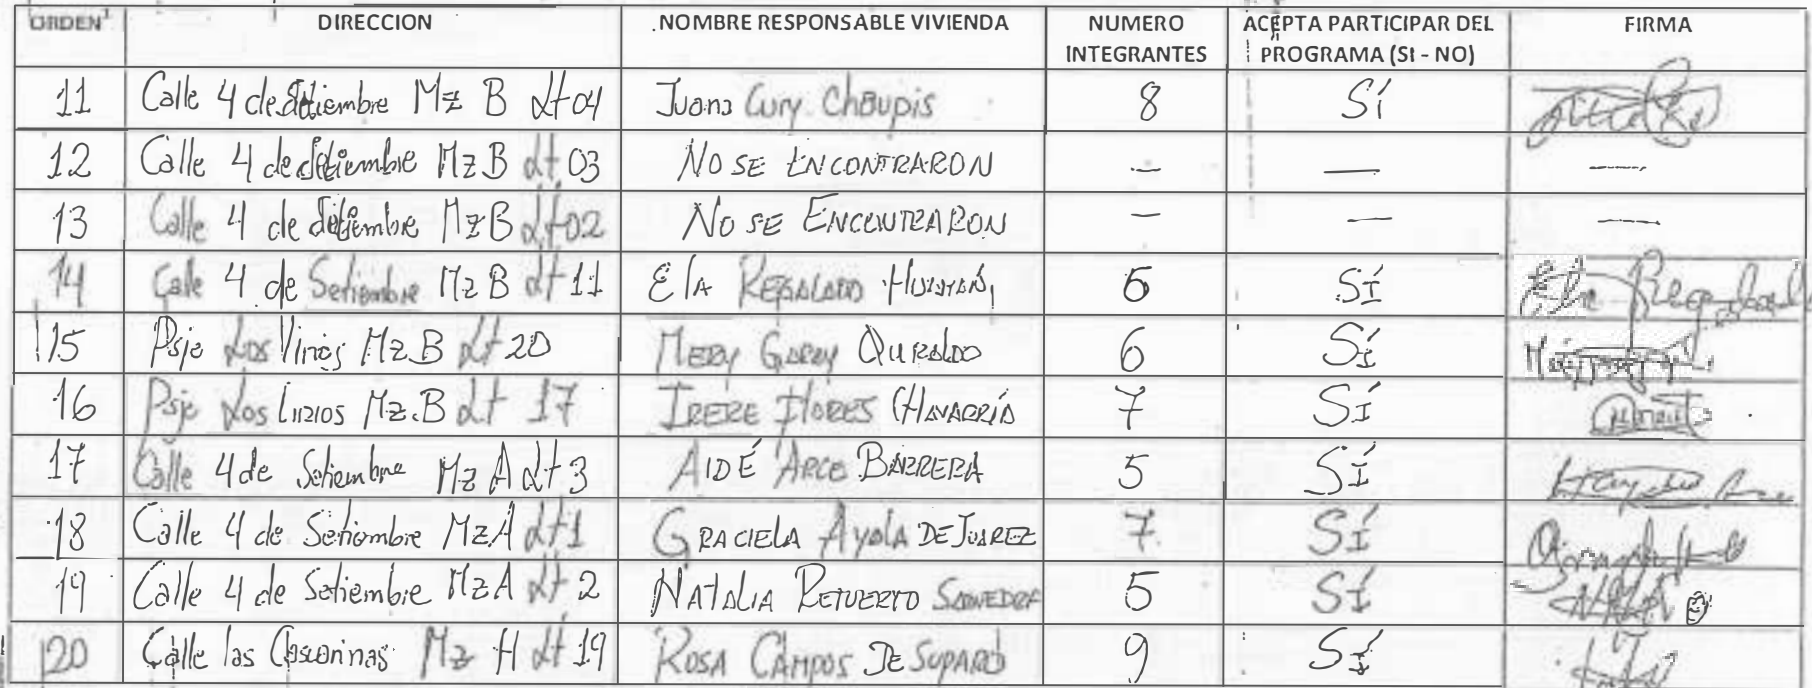 ORDEN DIRECCION NOMBRE RESPONSABLE VIVIENDA NUMERO INTEGRANTES ACEPTA PARTICIPAR DEL PROGRAMA (SI - NO) FIRMA
11 Calle 4 de Setiembre Mz B Lt 04 Juana Cury Chaupis 8 SÍ
12 Calle 4 de Setiembre Mz B Lt 03 NO SE ENCONTRARON — — —
13 Calle 4 de Setiembre Mz B Lt 02 NO SE ENCONTRARON — — —
14 Calle 4 de Setiembre Mz B Lt 11 ElA REGALADO SÍ
15 Psje Los Mz.B Lt 20 MERY 6 SÍ
16 Psje Los Mz.B Lt 17 FLORES 7 SÍ
17 Calle 4 de Setiembre Mz A Lt 3 AIDÉ ARCE BARRERA 5 SÍ
18 Calle 4 de Setiembre Mz A Lt 1 GRACIELA AyalA DE JUAREZ 7 SÍ
19 Calle 4 de Setiembre Mz A Lt 2 NATALIA RETUERTO SAAVEDRA 5 SÍ
20 Calle las Casuarinas Mz H Lt 19 ROSA CAMPOS DE 9 SÍ